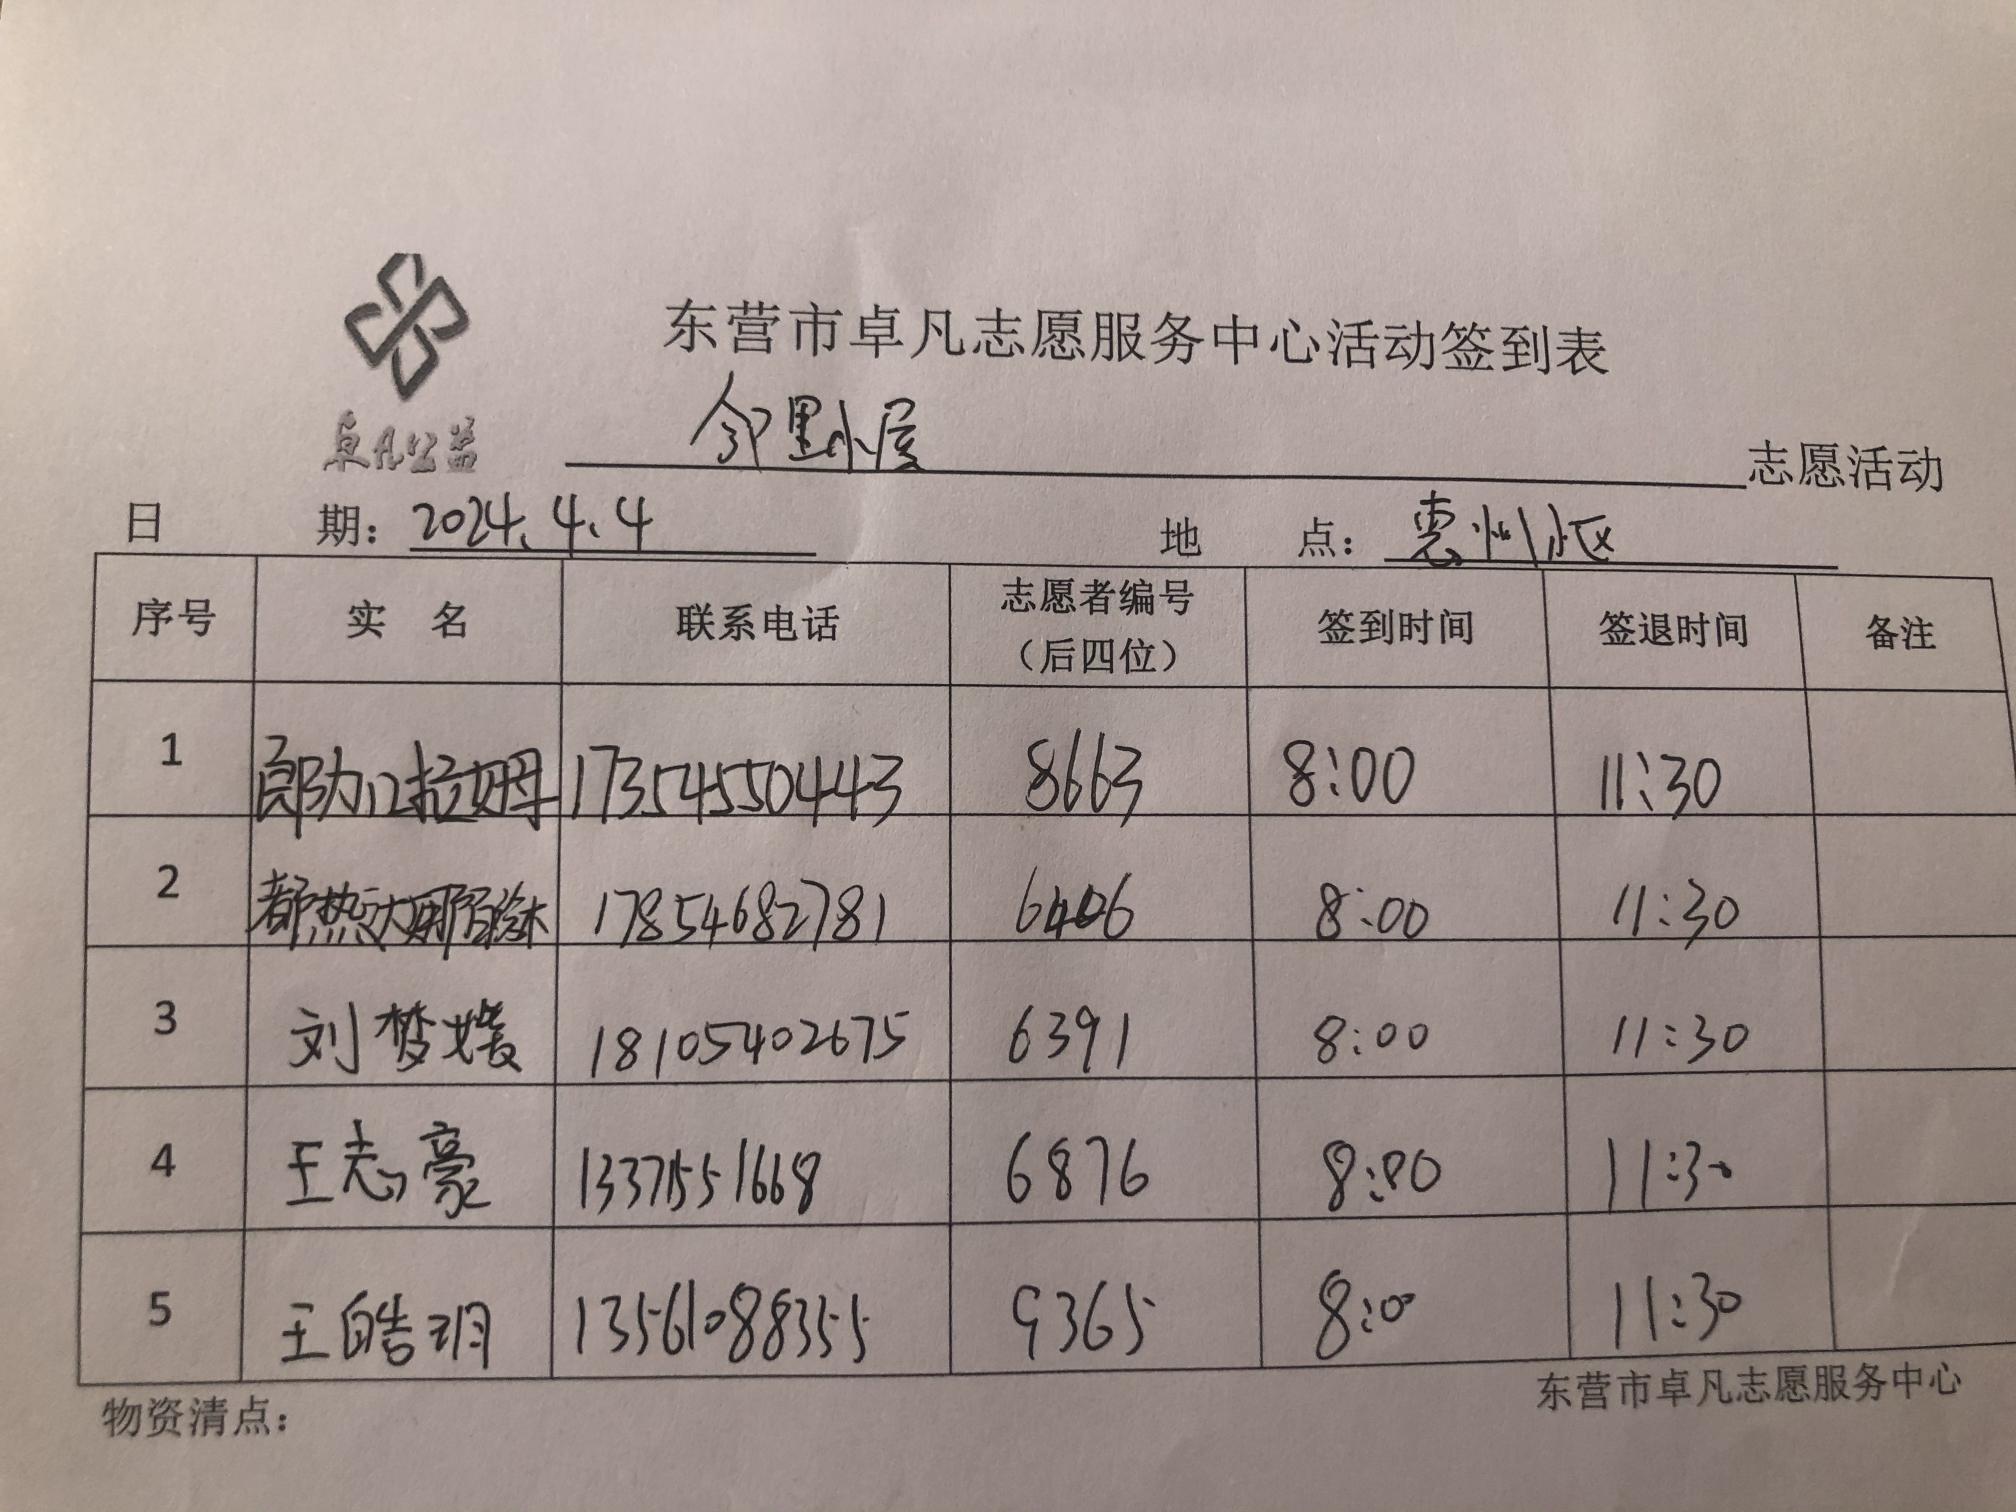 东营市卓凡志愿服务中心活动签到表
卓凡公益
邻里小屋 志愿活动
日 期：2024.4.4 地 点：惠州小区
序号 实 名 联系电话 志愿者编号（后四位） 签到时间 签退时间 备注
1 郎加拉姆 17354550443 8663 8:00 11:30
2 17854682781 6406 8:00 11:30
3 刘梦媛 18105402675 6391 8:00 11:30
4 王志豪 13371551668 6876 8:00 11:30
5 王皓玥 13561088355 9365 8:0 11:30
物资清点： 东营市卓凡志愿服务中心